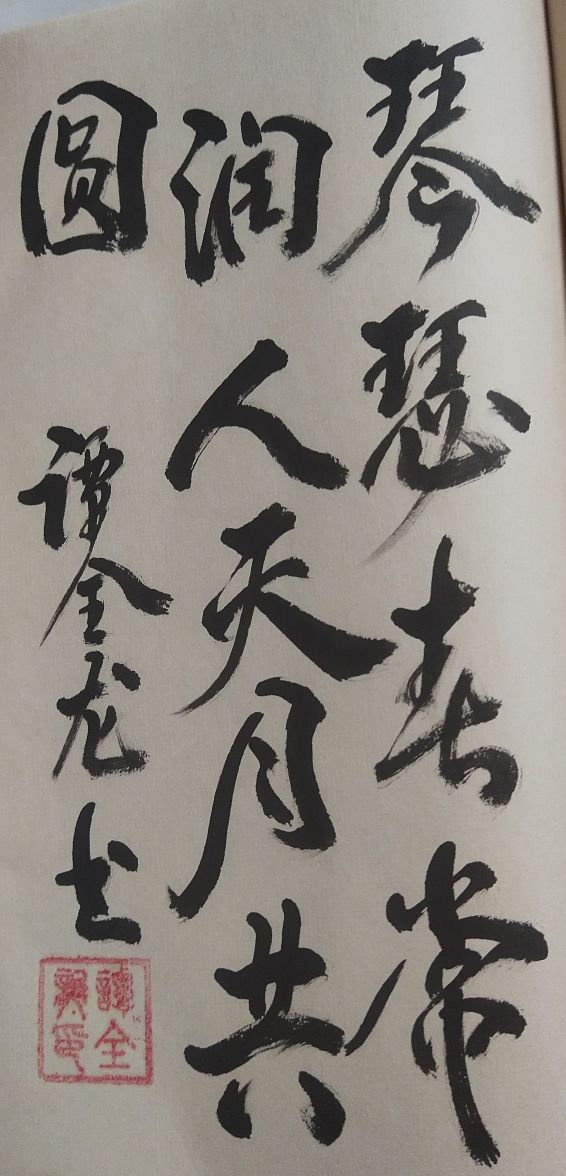 琴瑟春常
润人天月共
圆
谭全龙书
譚全
印